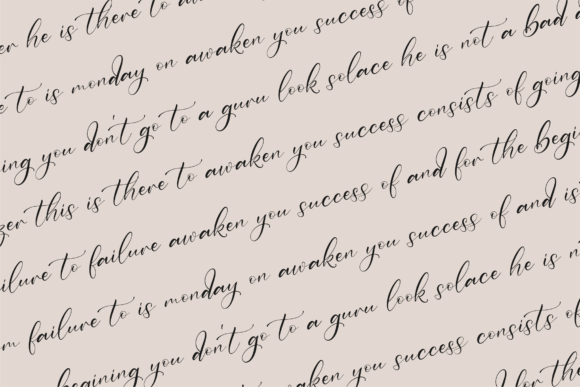 er he is there to
e to is monday on awaken you success of
ing you don't go to a guru look solace he is not a bad
zer this is there to awaken you success consists of going
ilure to failure awaken you success of and for the begi
m failure to is monday on awaken you success of and is
begining you don't go to a guru look solace he is n
awaken you success consists of
for the